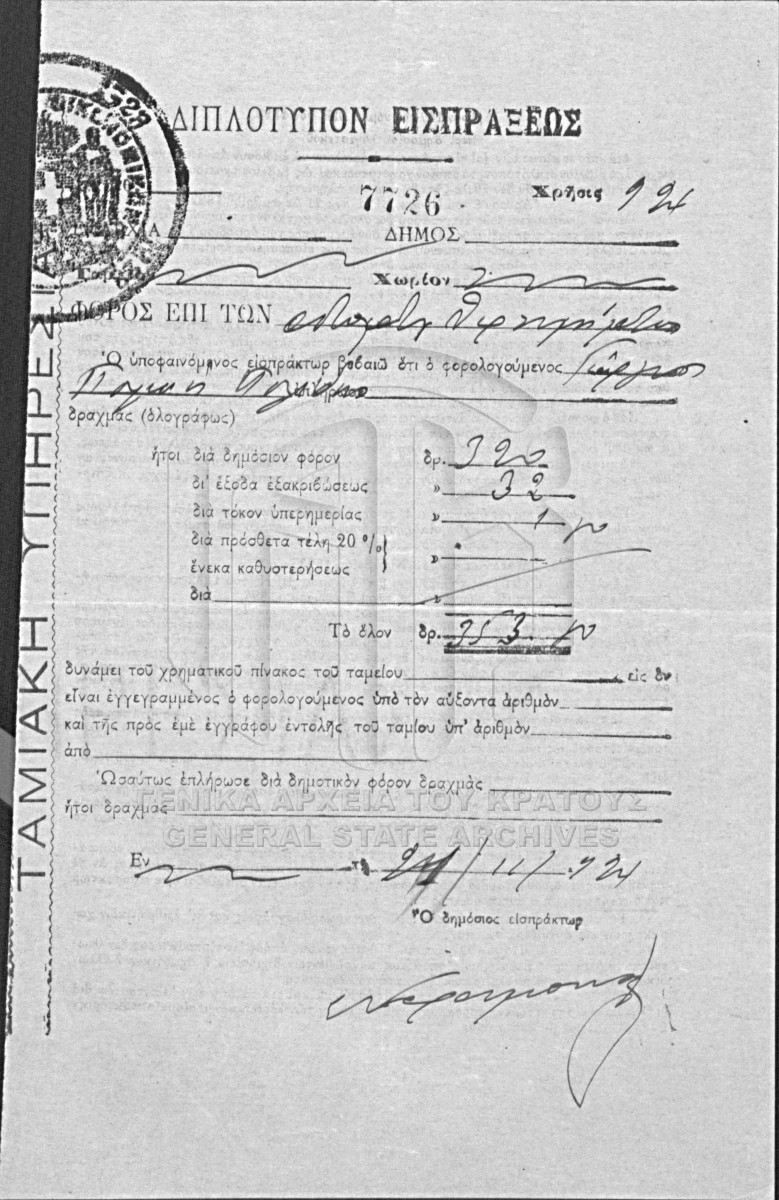 ΔΙΠΛΟΤΥΠΟΝ ΕΙΣΠΡΑΞΕΩΣ
7726 Χρῆσις 924
ΔΗΜΟΣ
Χωρίον
ΦΟΡΟΣ ΕΠΙ ΤΩΝ
Ὁ ὑποφαινόμενος εἰσπράκτωρ βεβαιῶ ὅτι ὁ φορολογούμενος Γεώργιος
δραχμὰς (ὁλογράφως)
ἤτοι διὰ δημόσιον φόρον δρ. 320
δι' ἔξοδα ἐξακριβώσεως » 32
διὰ τόκον ὑπερημερίας » 1
διὰ πρόσθετα τέλη 20 %
ἕνεκα καθυστερήσεως »
διὰ »
Τὸ ὅλον δρ. 353
δυνάμει τοῦ χρηματικοῦ πίνακος τοῦ ταμείου εἰς ὃν
εἶναι ἐγγεγραμμένος ὁ φορολογούμενος ὑπὸ τὸν αὔξοντα ἀριθμὸν
καὶ τῆς πρὸς ἐμὲ ἐγγράφου ἐντολῆς τοῦ ταμίου ὑπ' ἀριθμὸν
ἀπὸ
Ὡσαύτως ἐπλήρωσε διὰ δημοτικὸν φόρον δραχμὰς
ἤτοι δραχμὰς
ΓΕΝΙΚΑ ΑΡΧΕΙΑ ΤΟΥ ΚΡΑΤΟΥΣ
GENERAL STATE ARCHIVES
Ἐν τῇ 24/11/924
Ὁ δημόσιος εἰσπράκτωρ
ΤΑΜΙΑΚΗ ΥΠΗΡΕΣΙΑ